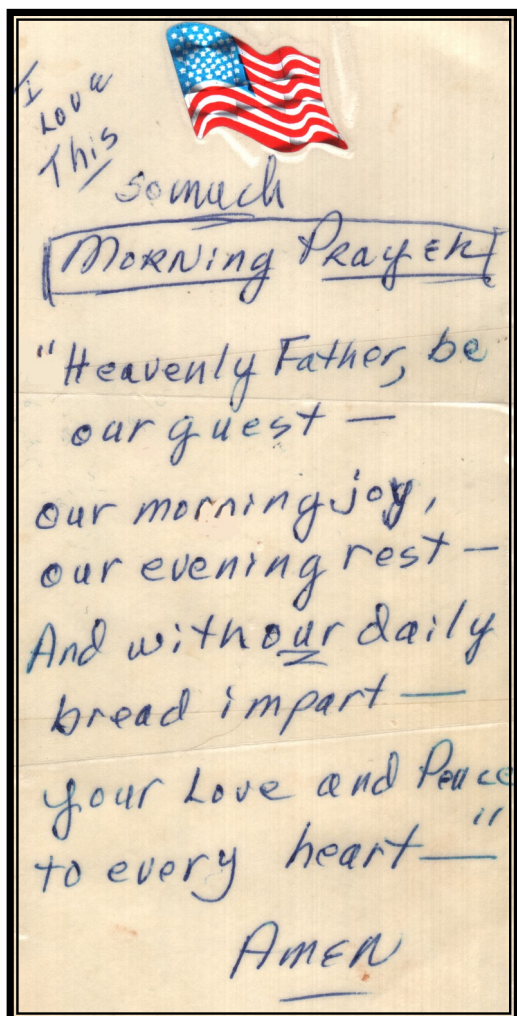 I
Love
This
somuch
Morning Prayer
"Heavenly Father, be
our guest —
our morning joy,
our evening rest —
And with our daily
bread impart —
your Love and Peace
to every heart —"
Amen